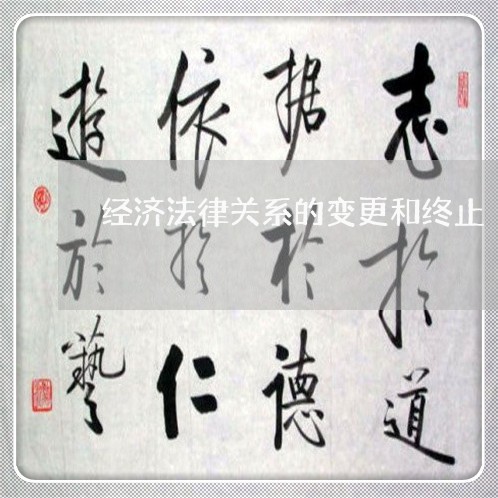 志於道
据於德
依於仁
遊於藝
经济法律关系的变更和终止